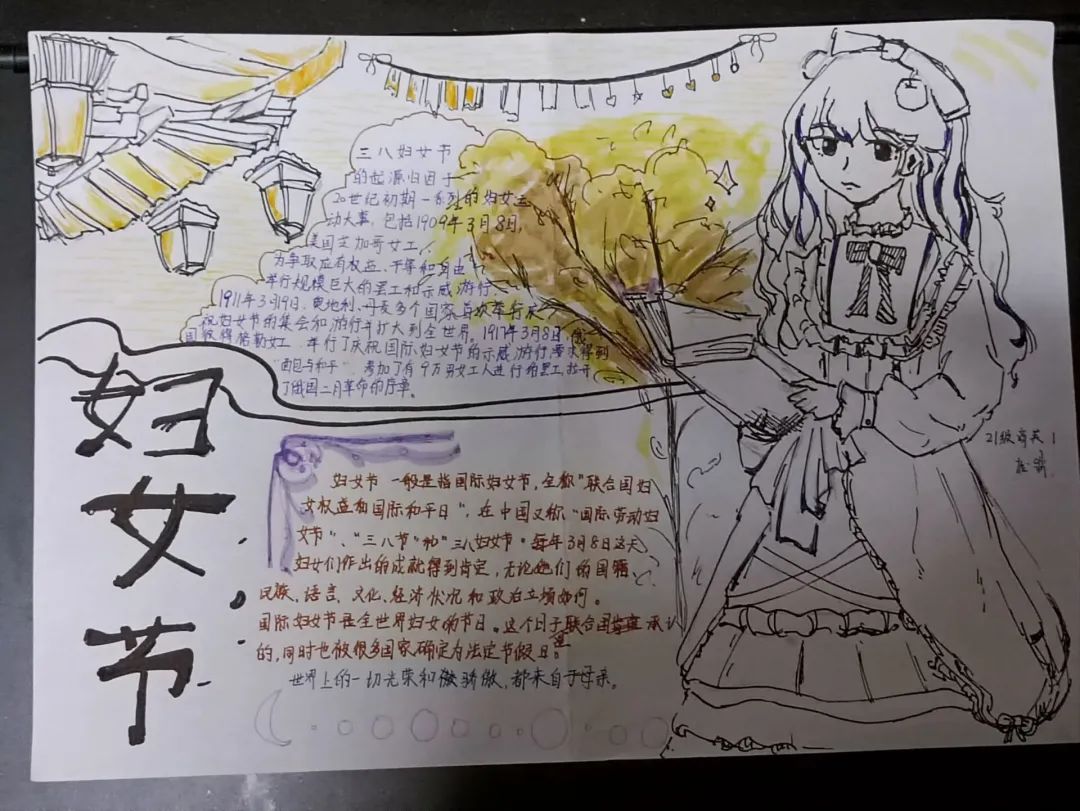 三八妇女节
的起源归因于
20世纪初期一系列的妇女运
动大事,包括1909年3月8日,
美国芝加哥女工,
为争取应有权益、平等和自由
举行规模巨大的罢工和示威游行
1911年3月19日,奥地利、丹麦多个国家首次举行庆
祝妇女节的集会和游行并扩大到全世界。1917年3月8日俄
国彼得格勒女工,举行了庆祝国际妇女节的示威游行要求得到
“面包与和平”,参加了有9万男女工人进行的罢工拉开
了俄国二月革命的序幕。
妇女节
妇女节 一般是指国际妇女节,全称“联合国妇
女权益和国际和平日”,在中国又称“国际劳动妇
女节”、“三八节”和“三八妇女节”每年3月8日这天
妇女们作出的成就得到肯定,无论她们的国籍
民族、语言、文化、经济状况和政治立场如何。
国际妇女节是全世界妇女的节日。这个日子联合国承认
的,同时也被很多国家确定为法定节假日。
世界上的一切光荣和骄傲,都来自于母亲。
21级商英1